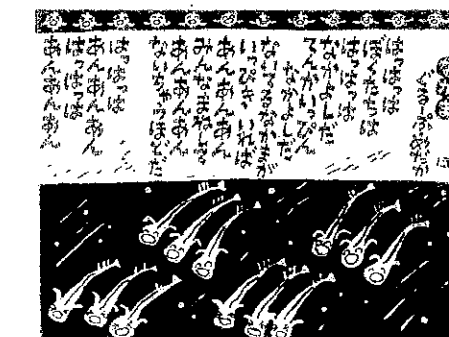 ぐるーぷめだか
はっはっは
はっはっは
てんかいっぴん
なかよしだ
ないてるなかまが
いっぴきいれば
あんあんあん
みんなまねして
あんあんあん
ないちゃうほどだ
はっはっは
あんあんあん
はっはっは
あんあんあん